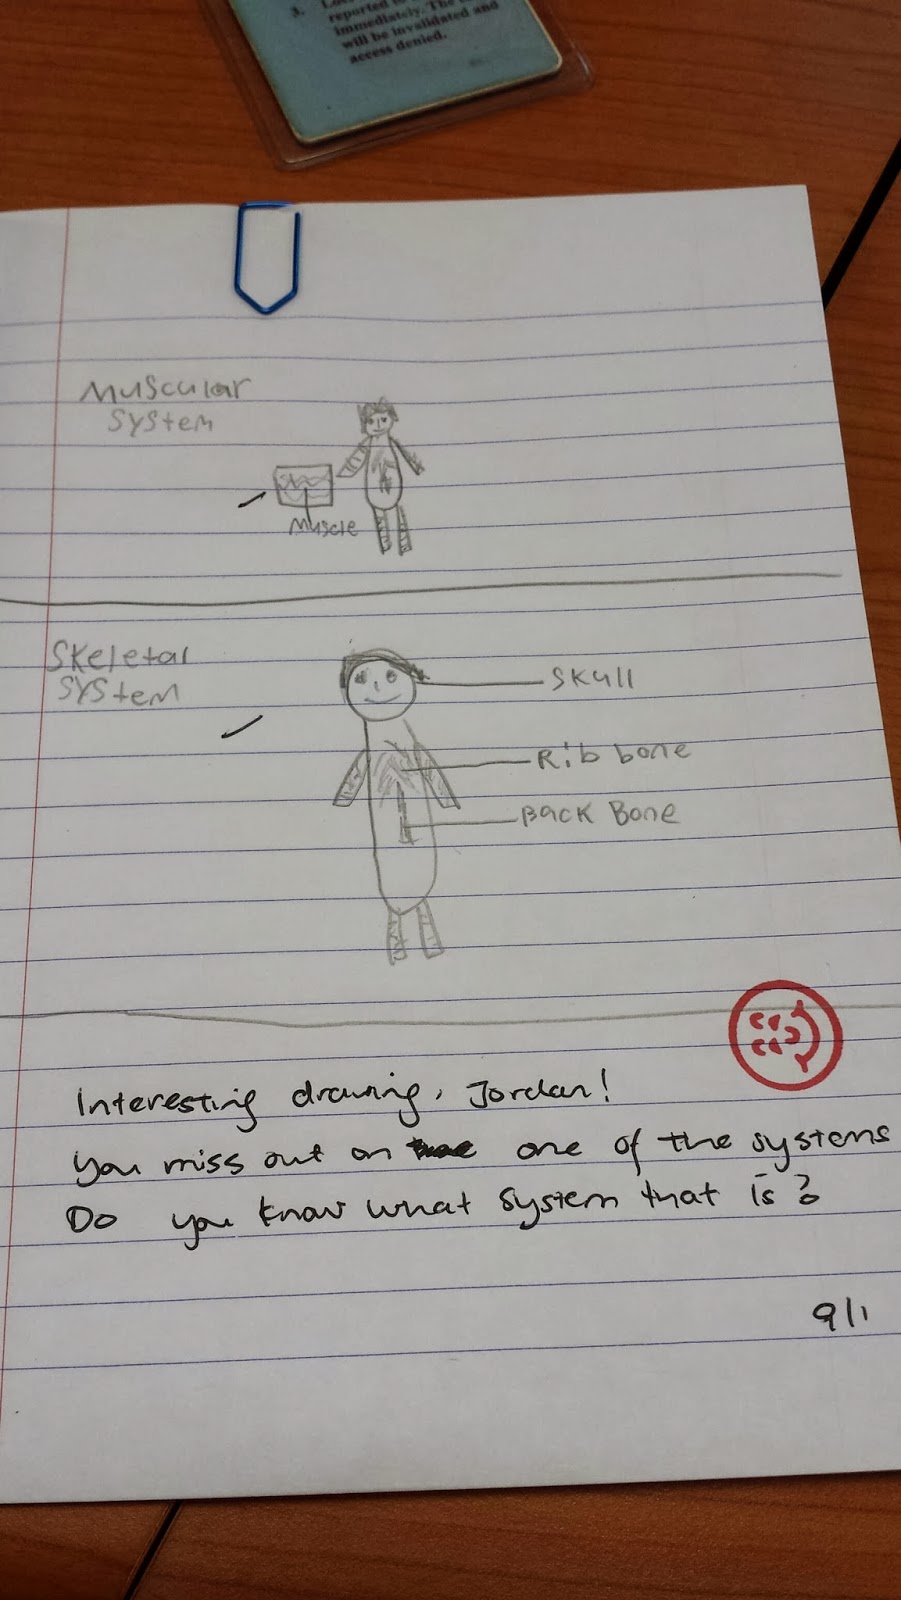 3.
reported to
immediately. The
will be invalidated and
access denied.
Muscular
System
Muscle
Skeletal
System
Skull
Rib bone
Back Bone
Interesting drawing, Jordan!
You miss out on one of the systems
Do you know what system that is?
9/1